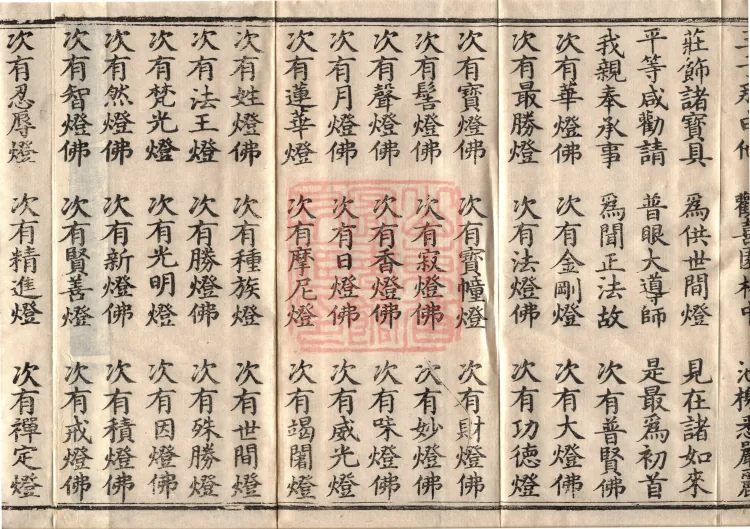 莊飾諸寶具　爲供世間燈　見在諸如來
平等咸勸請　普眼大導師　是最爲初首
我親奉承事　爲聞正法故　次有普賢佛
次有華燈佛　次有金剛燈　次有大燈佛
次有最勝燈　次有法燈佛　次有功德燈
次有寶燈佛　次有寶幢燈　次有財燈佛
次有髻燈佛　次有寂燈佛　次有妙燈佛
次有聲燈佛　次有香燈佛　次有味燈佛
次有月燈佛　次有日燈佛　次有威光燈
次有蓮華燈　次有摩尼燈　次有竭闍燈
次有姓燈佛　次有種族燈　次有世間燈
次有法王燈　次有勝燈佛　次有殊勝燈
次有梵光燈　次有光明燈　次有因燈佛
次有然燈佛　次有新燈佛　次有積燈佛
次有智燈佛　次有賢善燈　次有戒燈佛
次有忍辱燈　次有精進燈　次有禪定燈